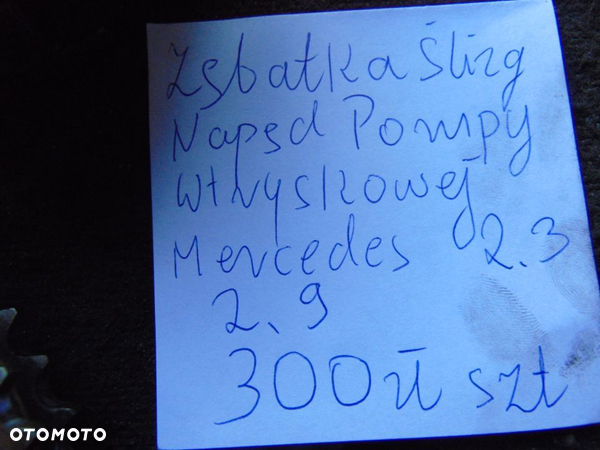 Zębatka Ślizg
Napęd Pompy
Wtryskowej
Mercedes 2.3
2.9
300 zł szt
OTOMOTO